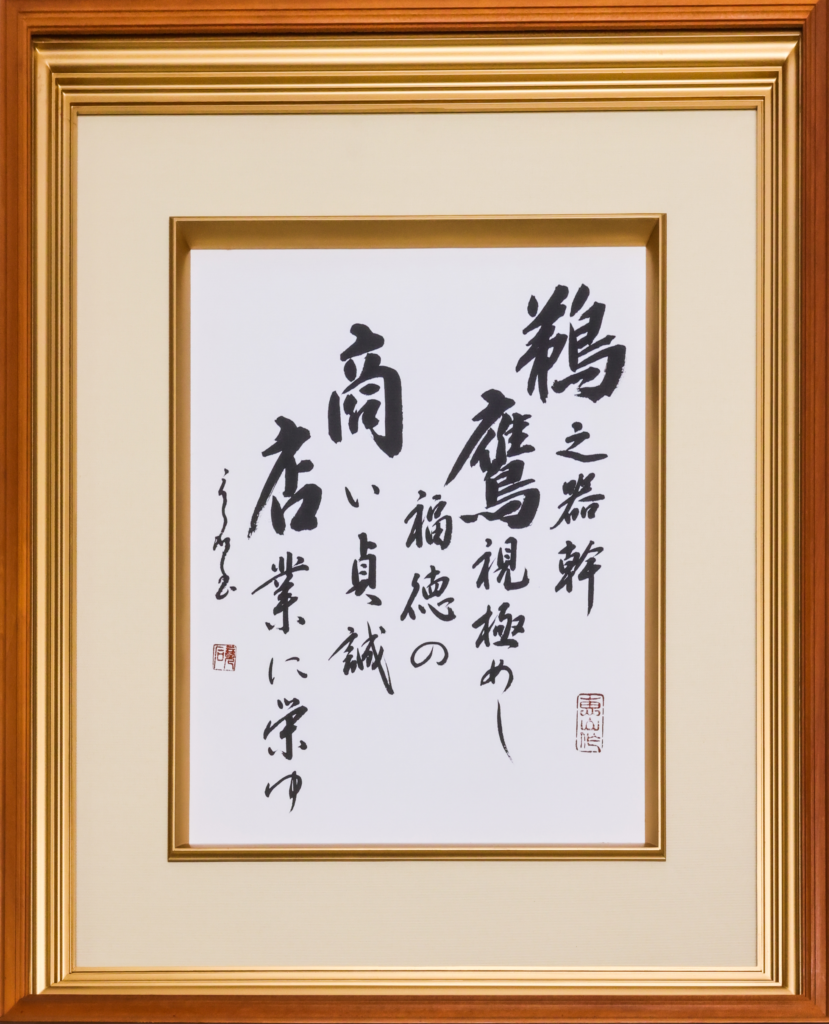 鵜之器幹
鷹視極めし
福徳の
商い貞誠
店業に栄ゆ